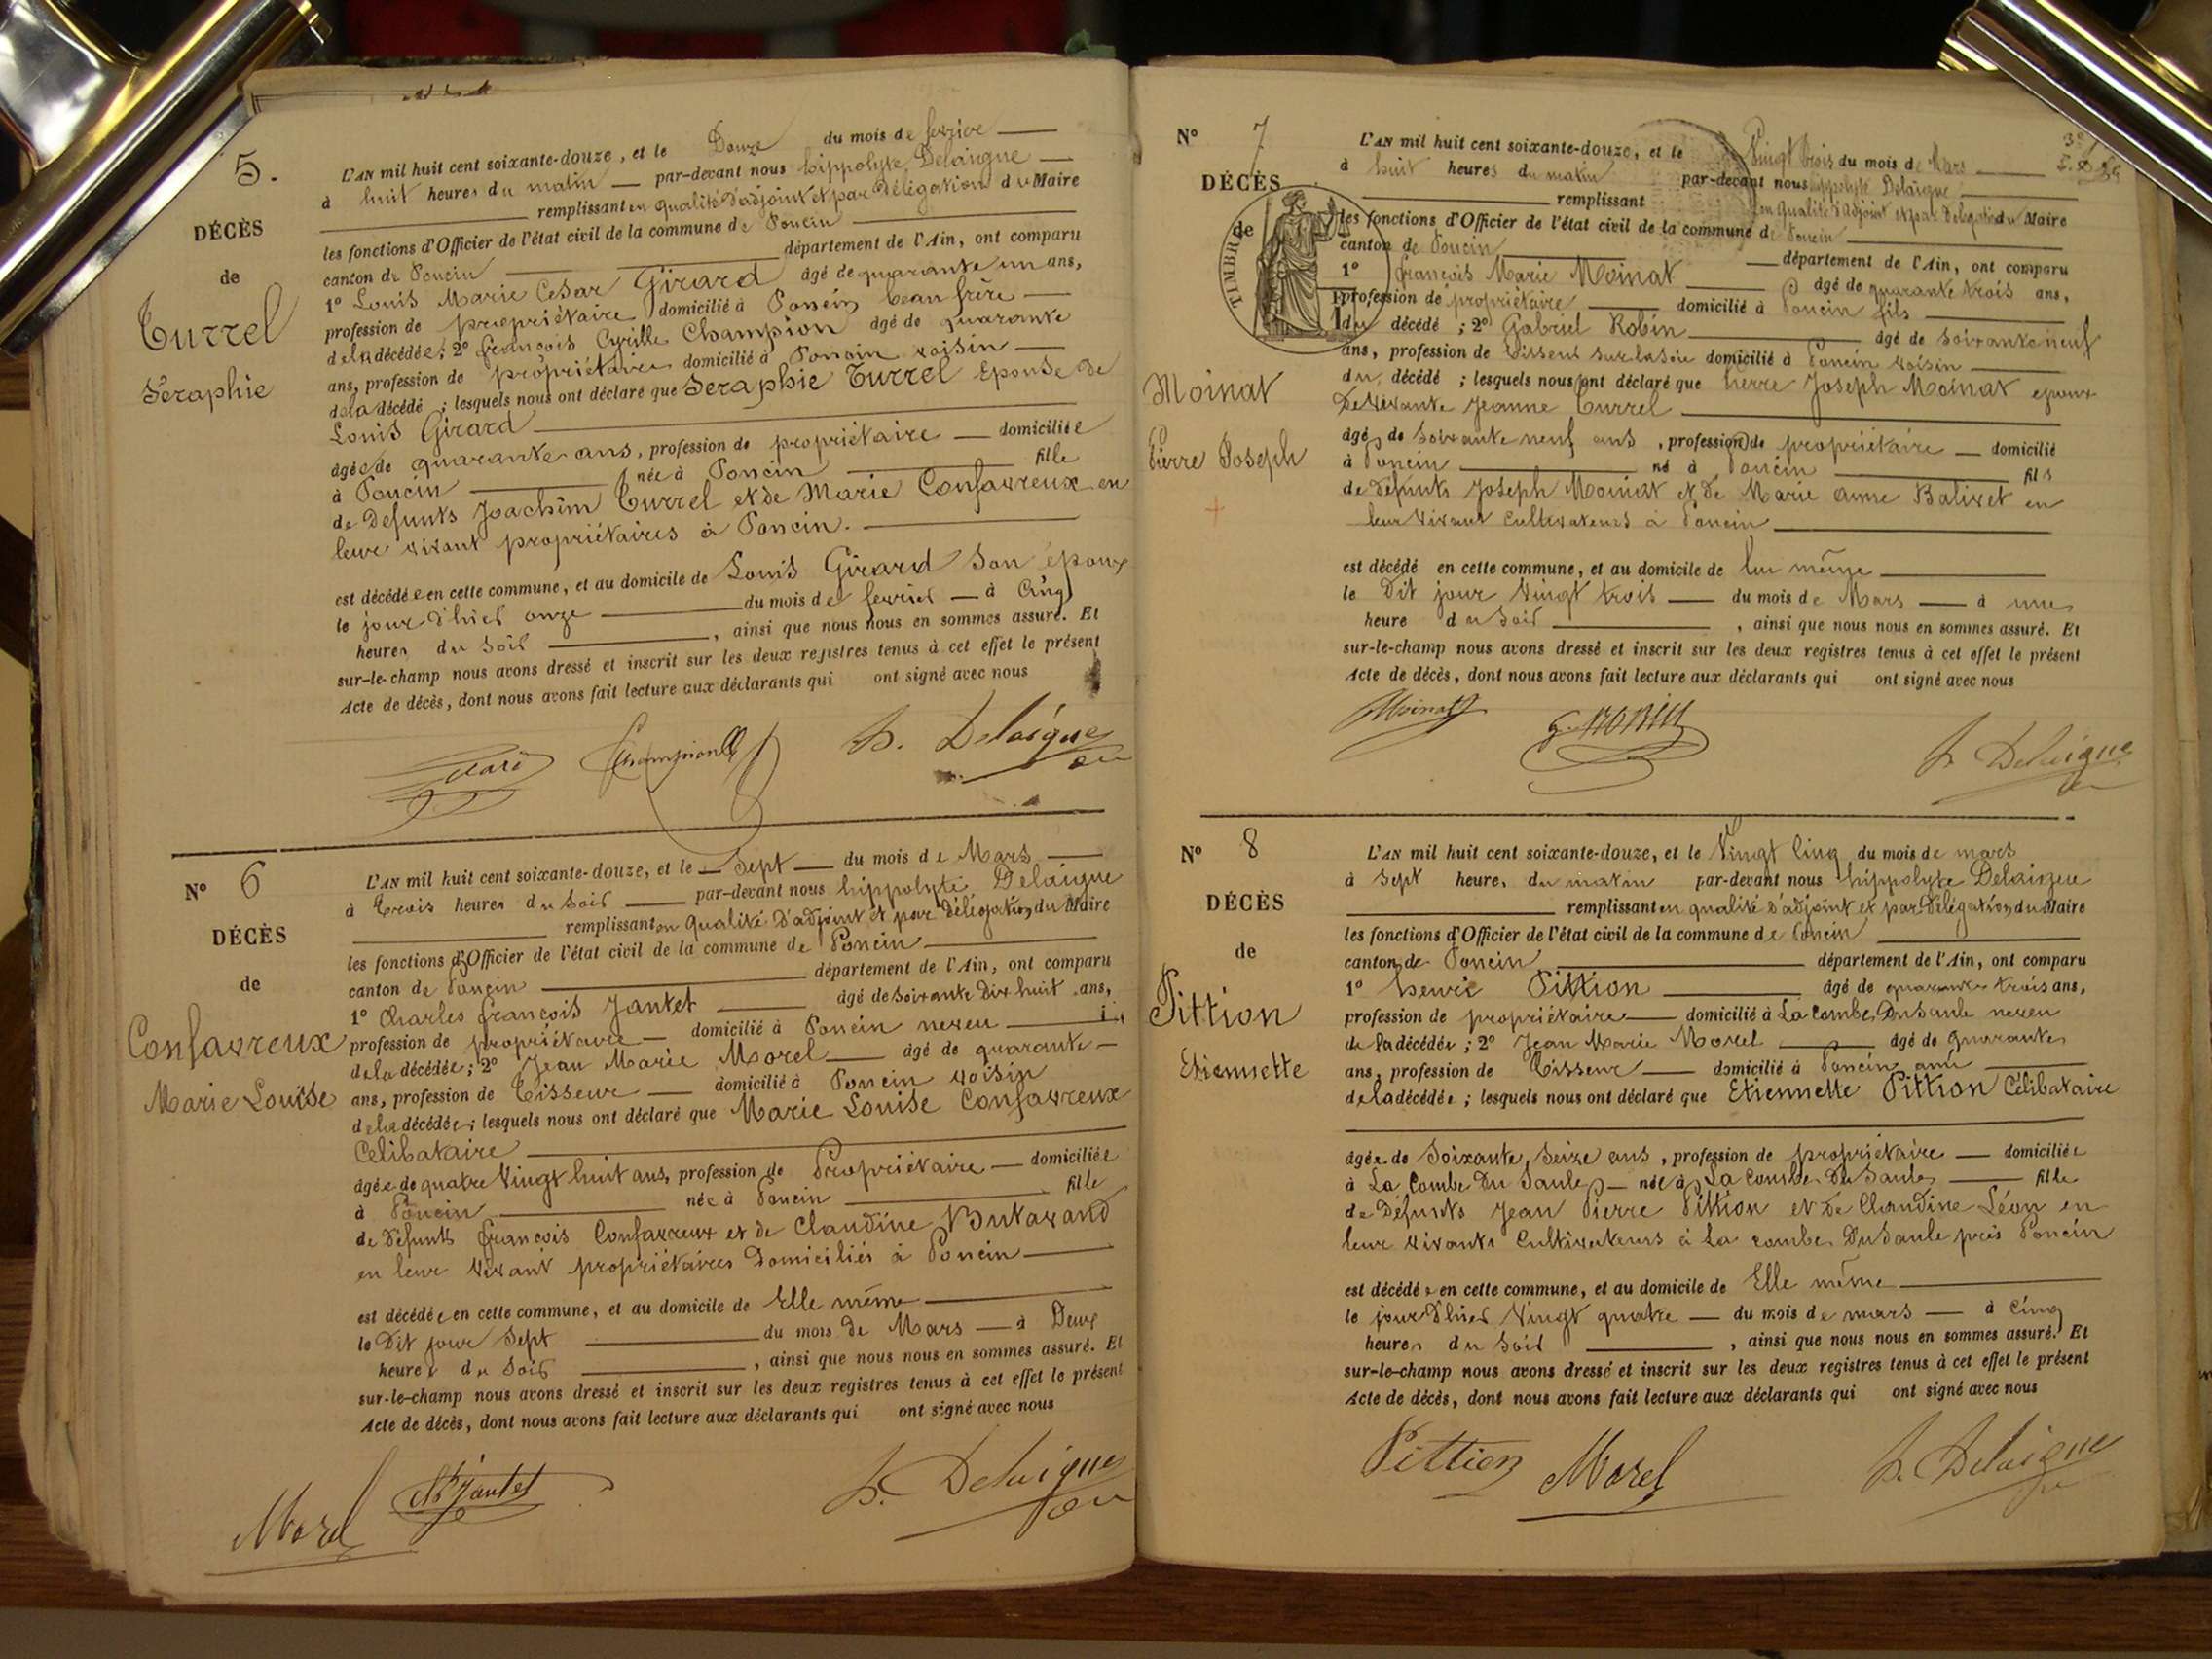 5.
DÉCÈS
de
Turrel
Séraphie
L'AN mil huit cent soixante-douze, et le Douze du mois de février
à huit heures du matin par-devant nous hippolyte Delaigue
remplissant en qualité d'adjoint et par Délégation du Maire
les fonctions d'Officier de l'état civil de la commune de Poncin
canton de Poncin département de l'Ain, ont comparu
1° Louis Marie Cesar Girard âgé de quarante un ans,
profession de propriétaire domicilié à Poncin beau frère
de la décédée; 2° françois Cyrille Champion âgé de quarante
ans, profession de propriétaire domicilié à Poncin voisin
de la décédé; lesquels nous ont déclaré que Seraphie Turrel Epouse de
Louis Girard
âgée de quarante ans, profession de propriétaire domiciliée
à Poncin née à Poncin fille
de Defunts Joachim Turrel et de Marie Confavreux en
leur vivant propriétaires à Poncin.
est décédée en cette commune, et au domicile de Louis Girard Son époux
le jour d'hier onze du mois de fevrier à Cinq
heures du Soir, ainsi que nous nous en sommes assuré. Et
sur-le-champ nous avons dressé et inscrit sur les deux registres tenus à cet effet le présent
Acte de décès, dont nous avons fait lecture aux déclarants qui ont signé avec nous
Champion h. Delaigue
N° 6
DÉCÈS
de
Confavreux
Marie Louise
L'AN mil huit cent soixante-douze, et le Sept du mois de Mars
à Trois heures du Soir par-devant nous hippolyte Delaigue
remplissant en qualité d'adjoint et par Délégation du Maire
les fonctions d'Officier de l'état civil de la commune de Poncin
canton de Poncin département de l'Ain, ont comparu
1° Charles françois Jantet âgé de soixante Dix huit ans,
profession de propriétaire domicilié à Poncin neveu
de la décédée; 2° Jean Marie Morel âgé de quarante
ans, profession de Tisseur domicilié à Poncin voisin
de la décédée; lesquels nous ont déclaré que Marie Louise Confavreux
Célibataire
âgée de quatre Vingt huit ans, profession de Propriétaire domiciliée
à Poncin née à Poncin fille
de Defunts françois Confavreux et de Claudine Butavand
en leur Vivant propriétaires Domiciliés à Poncin
est décédée en cette commune, et au domicile de Elle même
le Dit jour Sept du mois de Mars à Deux
heures du Soir, ainsi que nous nous en sommes assuré. Et
sur-le-champ nous avons dressé et inscrit sur les deux registres tenus à cet effet le présent
Acte de décès, dont nous avons fait lecture aux déclarants qui ont signé avec nous
Morel Jantet h. Delaigue
N° 7
DÉCÈS
de
TIMBRE
Moinat
Pierre Joseph
L'AN mil huit cent soixante-douze, et le Vingt trois du mois de Mars
à huit heures du matin par-devant nous hippolyte Delaigue
remplissant en qualité d'Adjoint et par Délégation du Maire
les fonctions d'Officier de l'état civil de la commune de Poncin
canton de Poncin département de l'Ain, ont comparu
1° françois Marie Moinat âgé de quarante trois ans,
profession de propriétaire domicilié à Poncin fils
du décédé; 2° Gabriel Robin âgé de soixante neuf
ans, profession de Tisseur sur la soie domicilié à Poncin voisin
du décédé; lesquels nous ont déclaré que Pierre Joseph Moinat epoux
De vivante Jeanne Turrel
âgé de soixante neuf ans, profession de propriétaire domicilié
à Poncin né à Poncin fils
de Défunts Joseph Moinat et De Marie anne Balivet en
leur Vivant Cultivateurs à Poncin
est décédé en cette commune, et au domicile de lui même
le Dit jour Vingt trois du mois de Mars à une
heure du Soir, ainsi que nous nous en sommes assuré. Et
sur-le-champ nous avons dressé et inscrit sur les deux registres tenus à cet effet le présent
Acte de décès, dont nous avons fait lecture aux déclarants qui ont signé avec nous
Moinat G. ROBIN h. Delaigue
N° 8
DÉCÈS
de
Pittion
Etiennette
L'AN mil huit cent soixante-douze, et le Vingt Cinq du mois de mars
à Sept heures du matin par-devant nous hippolyte Delaigue
remplissant en qualité d'adjoint et par Délégation du Maire
les fonctions d'Officier de l'état civil de la commune de Poncin
canton de Poncin département de l'Ain, ont comparu
1° henri Pittion âgé de quarante trois ans,
profession de propriétaire domicilié à La Combe Du Saule neveu
de la décédée; 2° Jean Marie Morel âgé de quarante
ans, profession de Tisseur domicilié à Poncin ami
de la décédée; lesquels nous ont déclaré que Etiennette Pittion Célibataire
âgée de Soixante Seize ans, profession de propriétaire domiciliée
à La Combe Du Saule née à La Combe Du Saule fille
de Défunts Jean Pierre Pittion et De Claudine Léon en
leur Vivants Cultivateurs à La combe Du Saule près Poncin
est décédée en cette commune, et au domicile de Elle même
le jour d'hier Vingt quatre du mois de mars à Cinq
heures du Soir, ainsi que nous nous en sommes assuré. Et
sur-le-champ nous avons dressé et inscrit sur les deux registres tenus à cet effet le présent
Acte de décès, dont nous avons fait lecture aux déclarants qui ont signé avec nous
Pittion Morel h. Delaigue